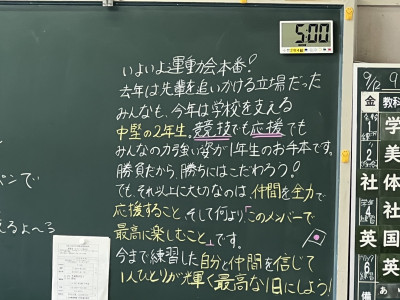 5:00
いよいよ運動会本番!
去年は先輩を追いかける立場だった
みんなも、今年は学校を支える
中堅の2年生。競技でも応援でも
みんなの力強い姿が1年生のお手本です。
勝負だから、勝ちにはこだわろう!
でも、それ以上に大切なのは、仲間を全力で
応援すること、そして何より「このメンバーで
最高に楽しむこと」です。
今まで練習した自分と仲間を信じて
1人ひとりが輝く最高な1日にしよう!
ンで
えるよ〜る
9/12
金
教科
学
美
社
体
社
国
英
英
備